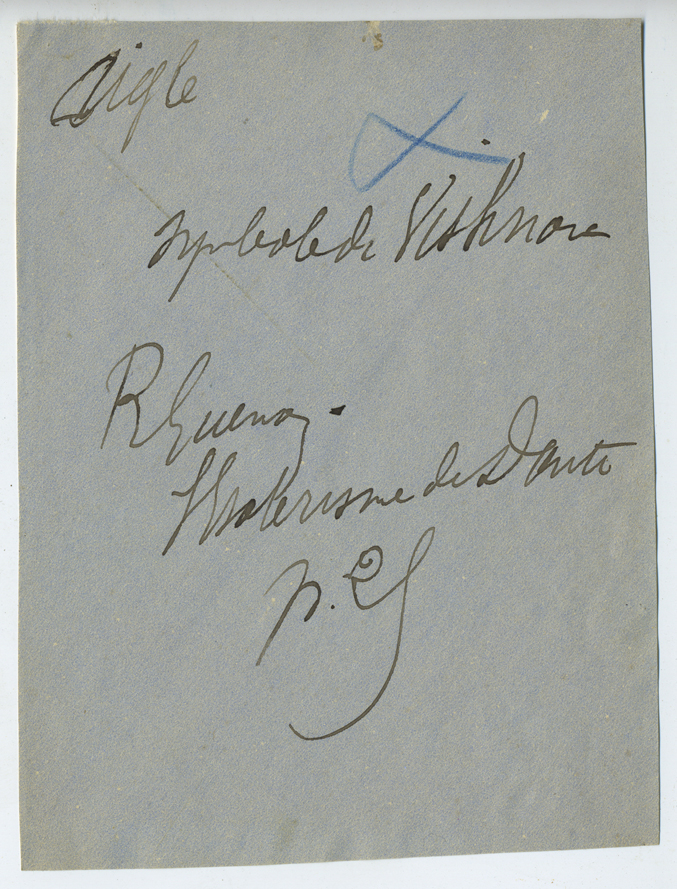 Aigle
Symbole de Vishnou
R Guenon.
l'Esoterisme de Dante
p. 25